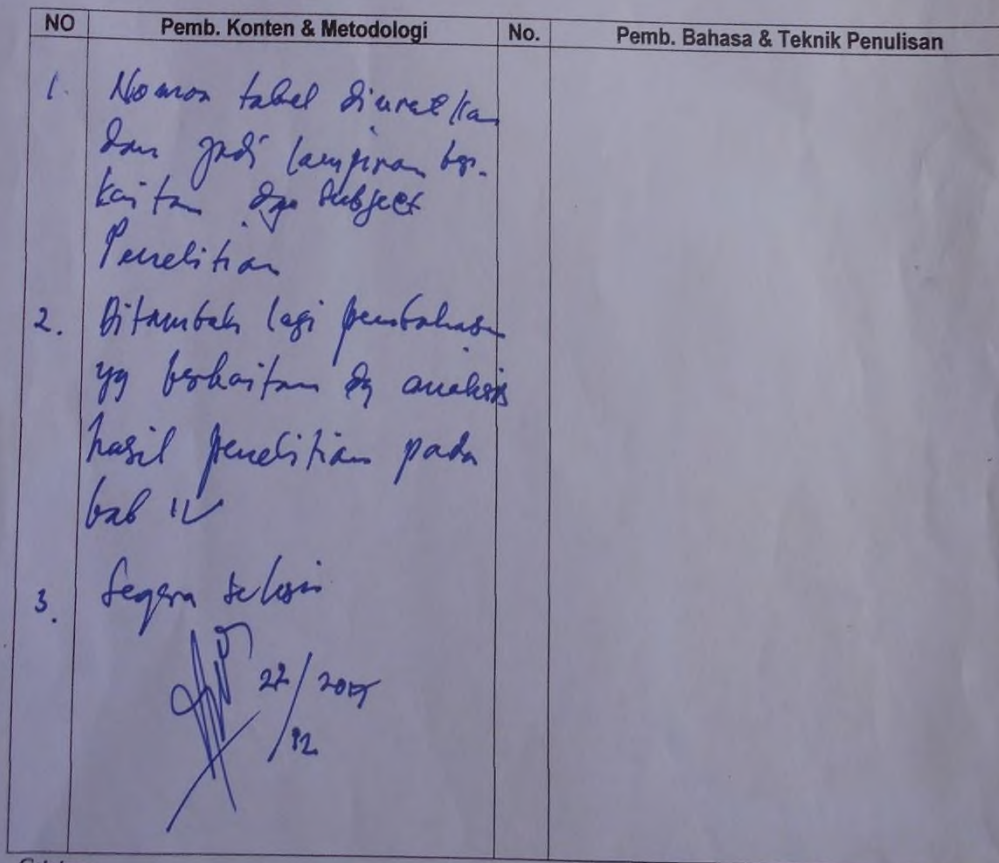 NO Pemb. Konten & Metodologi No. Pemb. Bahasa & Teknik Penulisan
1. Nomor tabel diuratkan
dan jadi lampiran ber-
kaitan dgn Subject
Penelitian
2. Ditambah lagi pembahasan
yg berkaitan dg analisis
hasil penelitian pada
bab IV
3. Segera selesai
22/12